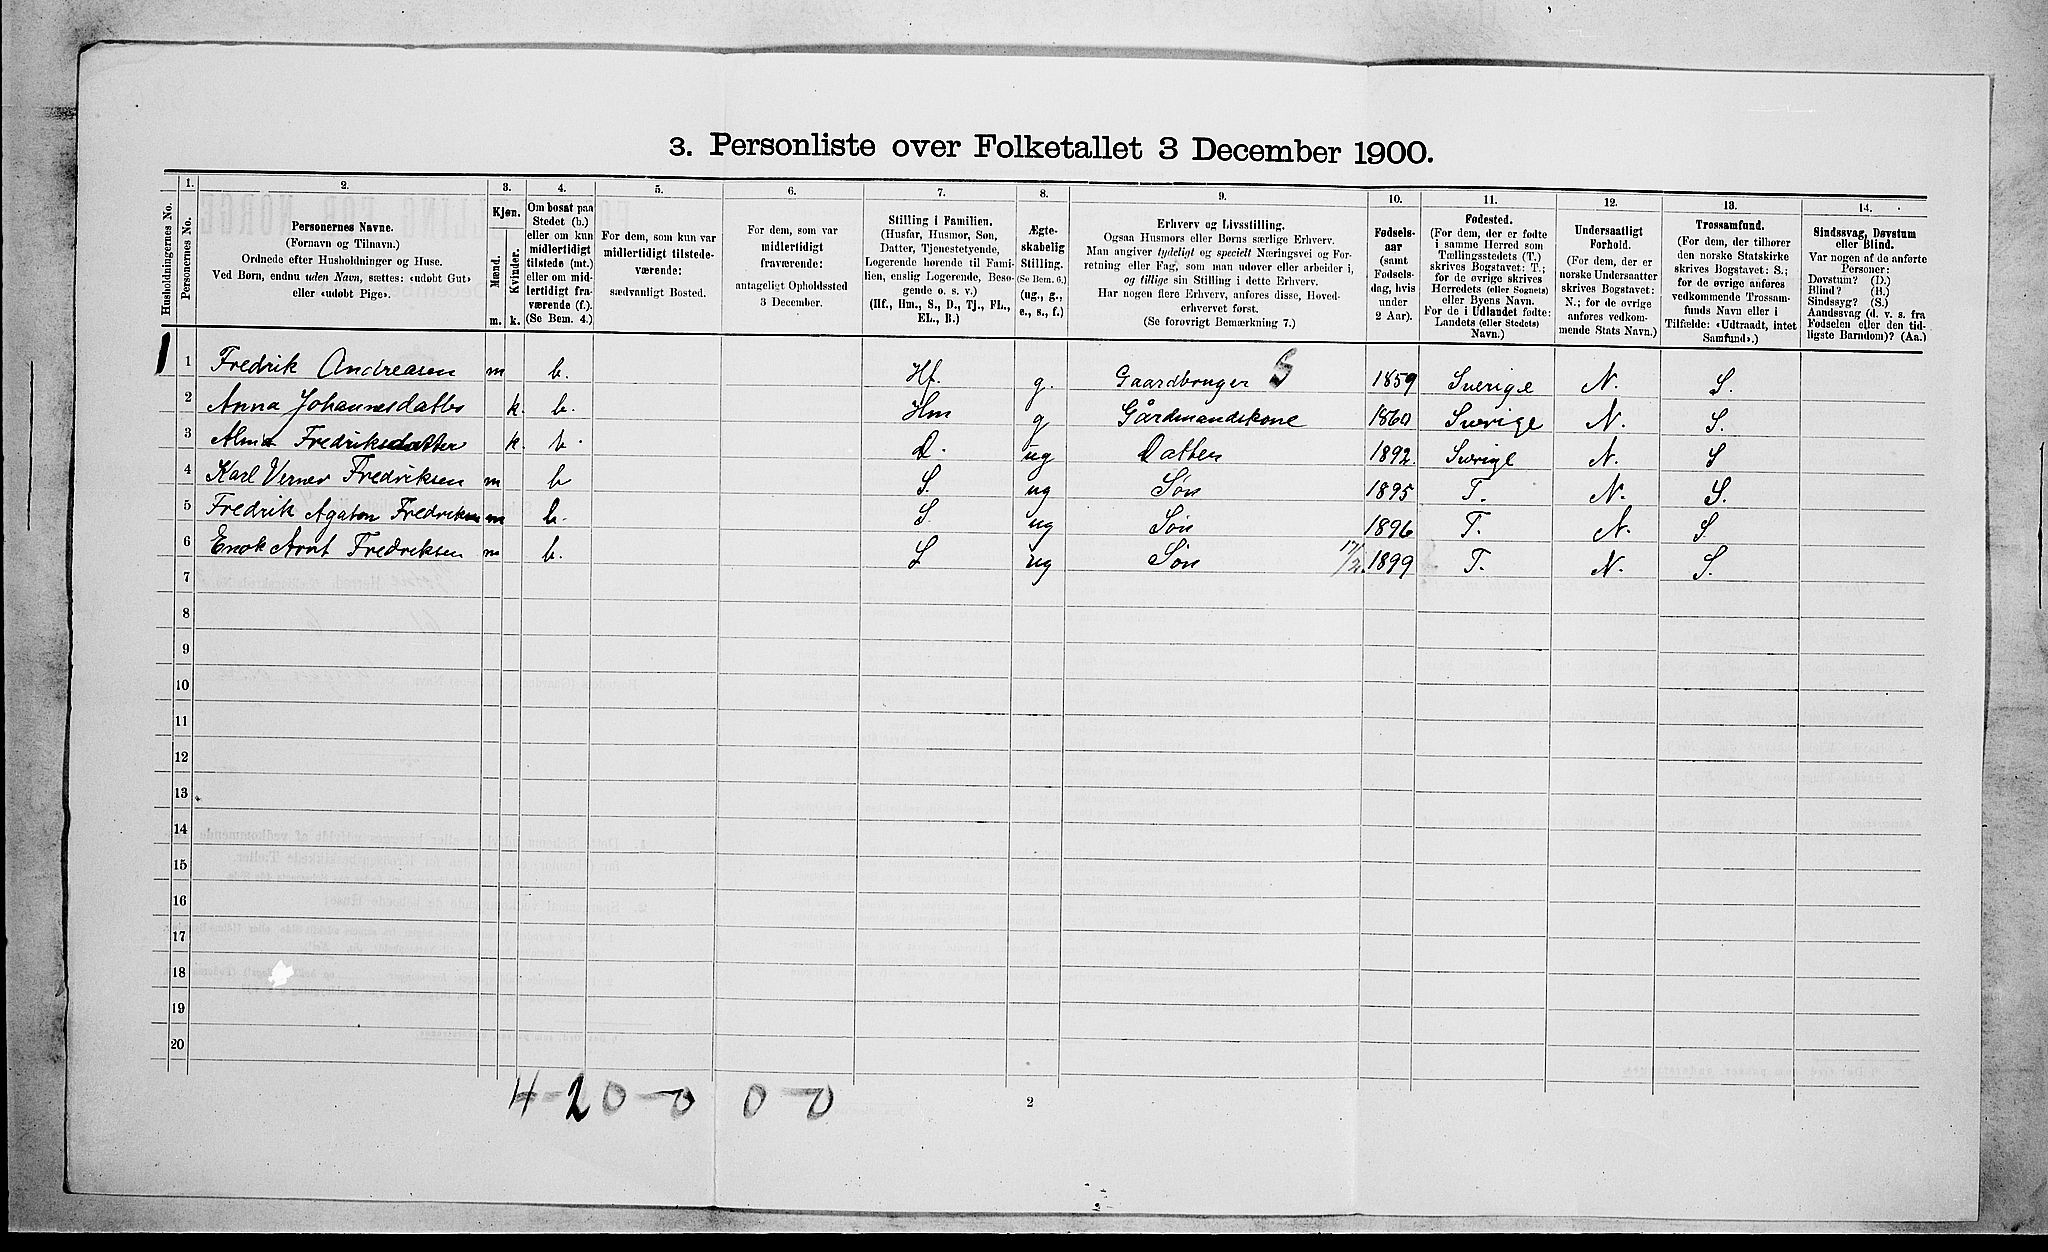 3. Personliste over Folketallet 3 December 1900.
Husholdningernes No.
1. Personernes No.
2. Personernes Navne.
(Fornavn og Tilnavn.)
Ordnede efter Husholdninger og Huse.
Ved Børn, endnu uden Navn, sættes: «udøbt Gut»
eller «udøbt Pige».
3. Kjøn.
Mænd. m.
Kvinder. k.
4. Om bosat paa
Stedet (b.)
eller om kun
midlertidigt
tilstede (mt.)
eller om mid-
lertidigt fra-
værende (f.)
(Se Bem. 4.)
5. For dem, som kun var
midlertidigt tilstede-
værende:
sædvanligt Bosted.
6. For dem, som var
midlertidigt
fraværende:
antageligt Opholdssted
3 December.
7. Stilling i Familien.
(Husfar, Husmor, Søn,
Datter, Tjenestetyende,
Logerende hørende til Fami-
lien, enslig Logerende, Besø-
gende o. s. v.)
(Hf., Hm., S., D., Tj., FL.,
EL., B.)
8. Ægte-
skabelig
Stilling.
(Se Bem. 6.)
(ug., g.,
e., s., f.)
9. Erhverv og Livsstilling.
Ogsaa Husmors eller Børns særlige Erhverv.
Man angiver tydeligt og specielt Næringsvei og For-
retning eller Fag, som man udøver eller arbeider i,
og tillige sin Stilling i dette Erhverv.
Har nogen flere Erhverv, anføres disse, Hoved-
erhvervet først.
(Se forøvrigt Bemærkning 7.)
10. Fødsels-
aar
(samt
Fødsels-
dag, hvis
under
2 Aar).
11. Fødested.
(For dem, der er fødte
i samme Herred som
Tællingsstedets (T.)
skrives Bogstavet: T.;
for de øvrige skrives
Herredets (eller Sognets)
eller Byens Navn.
For de i Udlandet fødte:
Landets (eller Stedets)
Navn.)
12. Undersaatligt
Forhold.
(For dem, der er
norske Undersaatter
skrives Bogstavet:
N.; for de øvrige
anføres vedkom-
mende Stats Navn.)
13. Trossamfund.
(For dem, der tilhører
den norske Statskirke
skrives Bogstavet: S.;
for de øvrige anføres
vedkommende Trossam-
funds Navn eller i
Tilfælde: «Udtraadt, intet
Samfund».)
14. Sindssvag, Døvstum
eller Blind.
Var nogen af de anførte
Personer:
Døvstum? (D.)
Blind? (B.)
Sindssyg? (S.)
Aandssvag (d. v. s. fra
Fødselen eller den tid-
ligste Barndom)? (Aa.)
1 1 Fredrik Andreasen m b. Hf. g. Gaardbruger S 1859 Sverige N. S.
2 Anna Johannesdatter k. b. Hm g Gårdmandskone 1860 Sverige N. S.
3 Alma Fredriksdatter k. b. D. ug Datter 1892. Sverige N. S
4 Karl Verner Fredriksen m b S. ug Søn 1895 T. N. S.
5 Fredrik Agaton Fredriksen m b. S. ug Søn 1896 T. N. S.
6 Enok Arnt Fredriksen m b. S ug Søn 17/2. 1899 T. N. S.
7
8
9
10
11
12
13
14
15
16
17
18
19
20
4-2 0-0 0-0
2